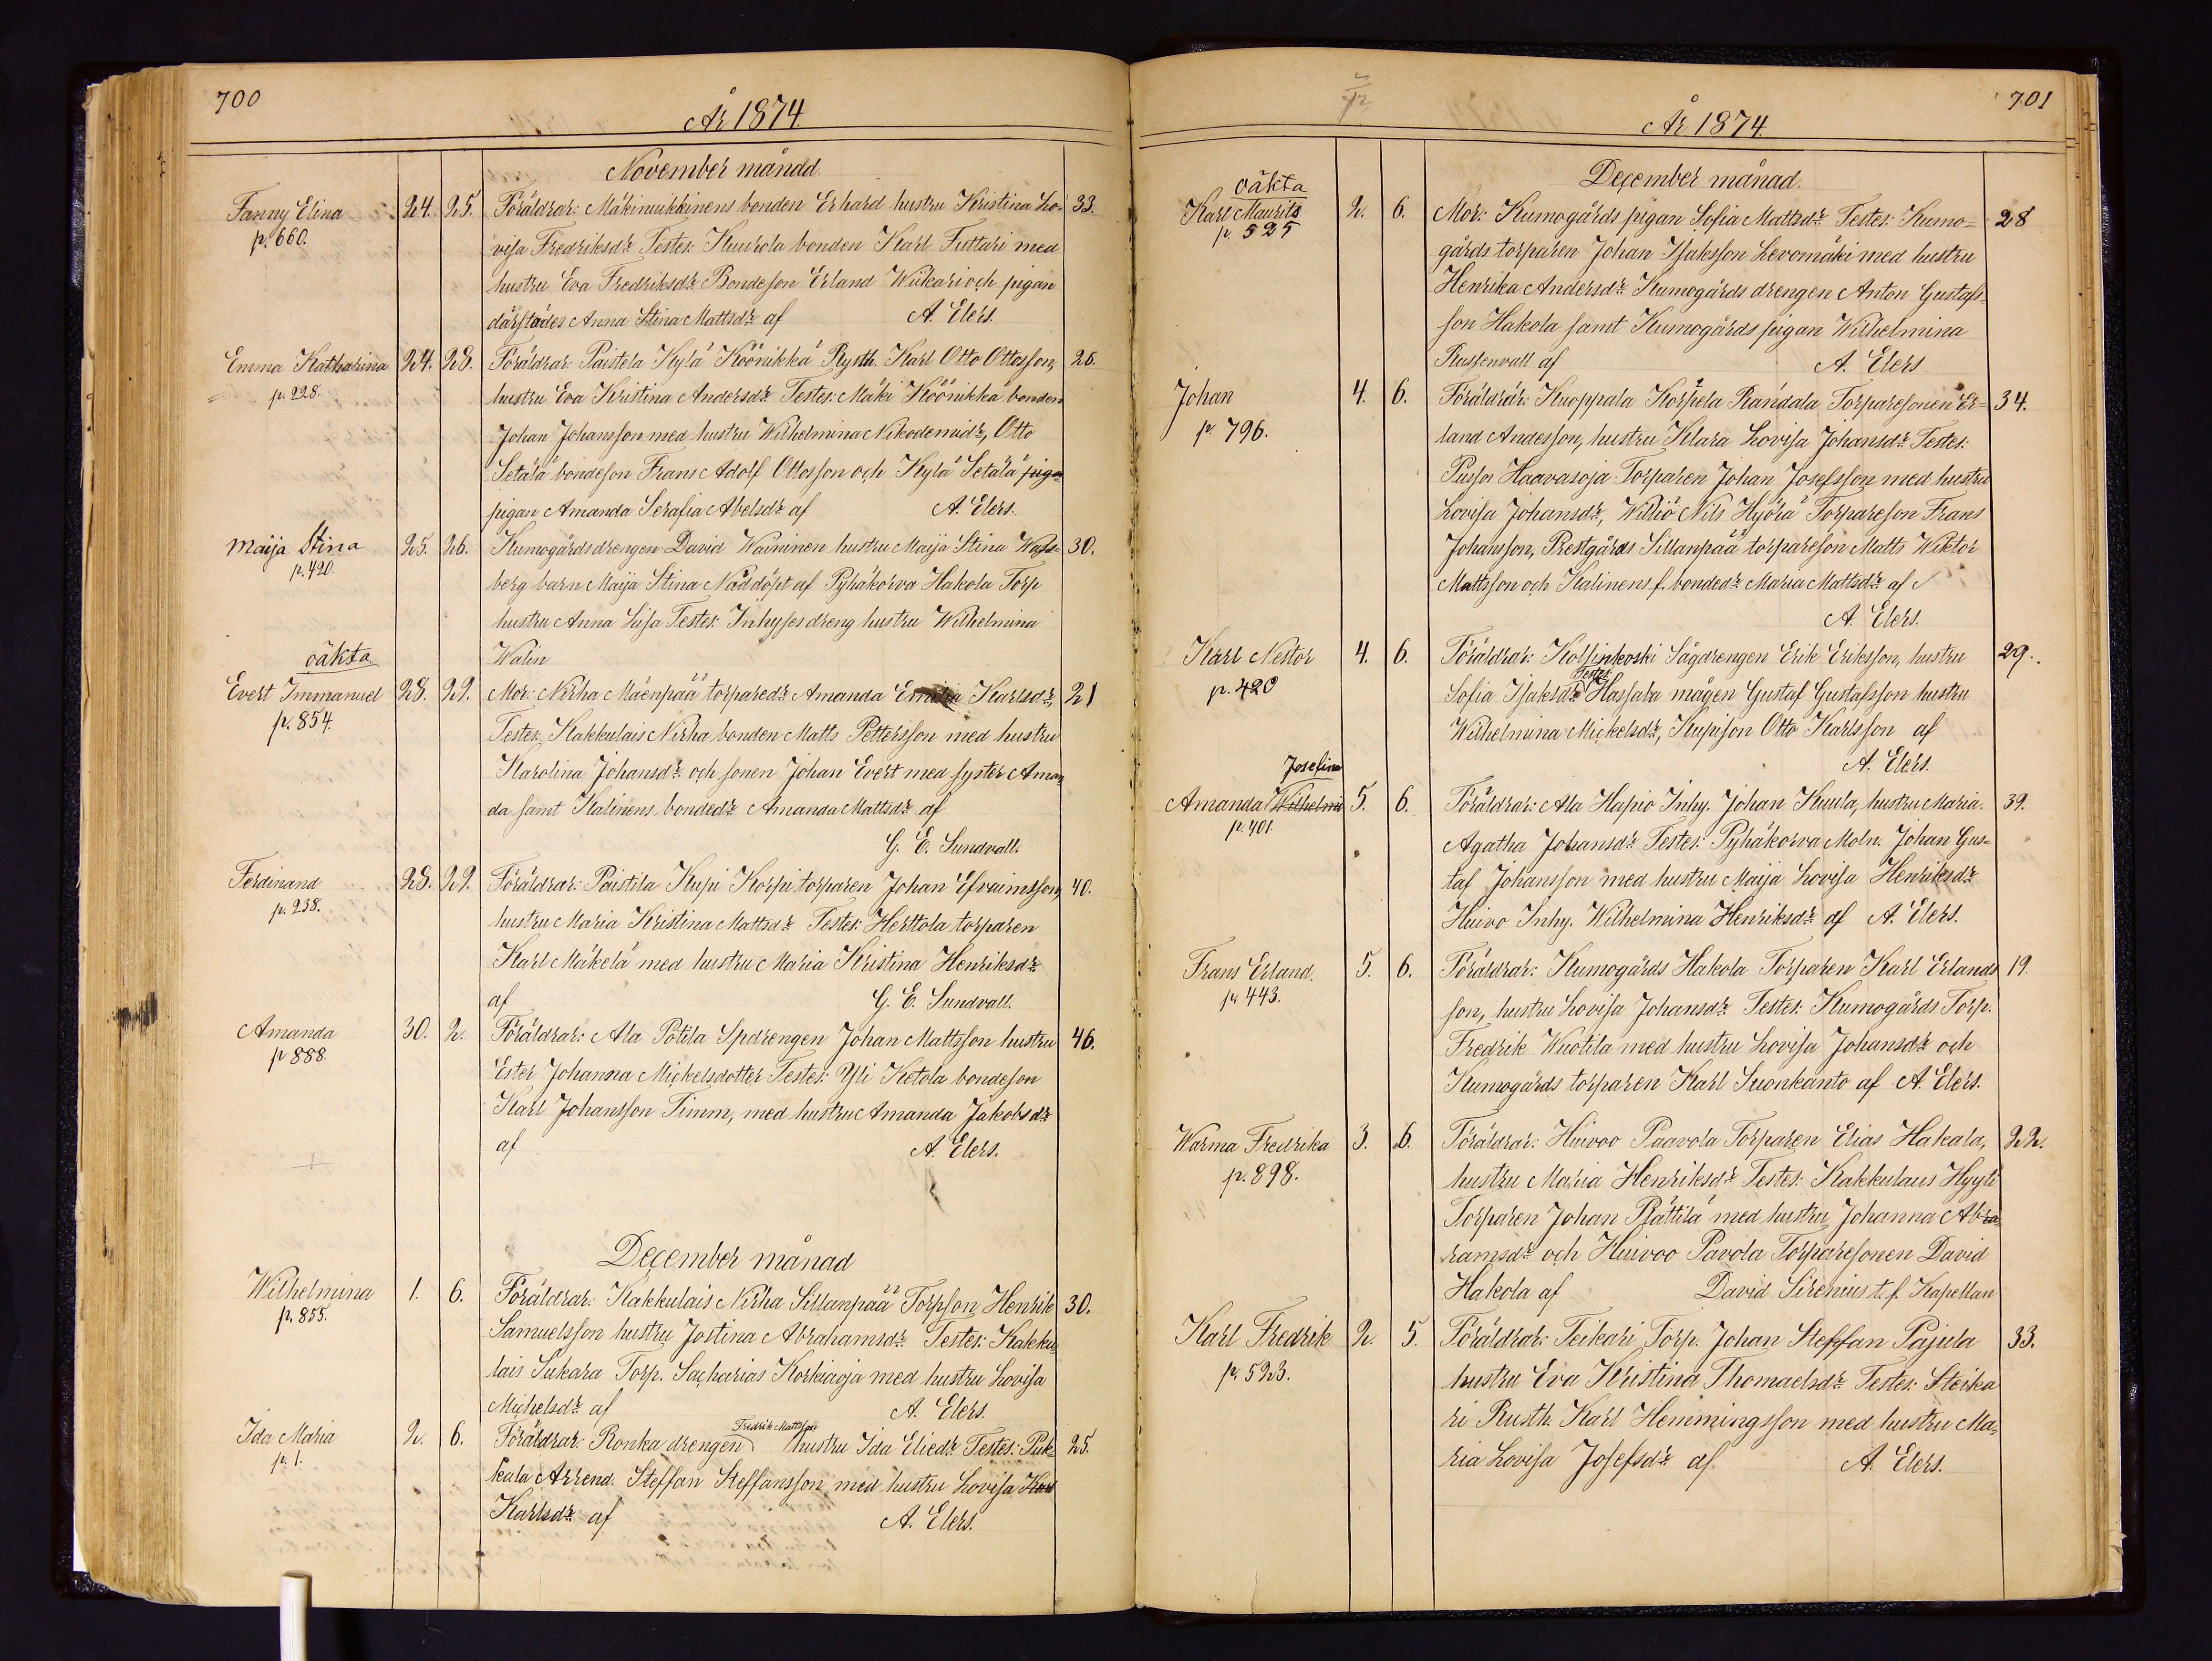 700
År 1874.
November månad.
Fanny Elina 24. 25. Föräldrar: Mäkinuikkinens bonden Erhard hustru Kristina Lo- 33.
p. 660. visa Fredriksdr Testes: Kuurola bonden Karl Futtari med
hustru Eva Fredriksdr Bondeson Erland Wiikari och pigan
därstädes Anna Stina Mattsdr af A. Elers.
Emma Katharina 24. 28. Föräldrar: Paistela Kylä Köönikkä Rusth. Karl Otto Ottosson, 26.
p. 228. hustru Eva Kristina Andersdr Testes: Mäki Köönikkä bonden
Johan Johansson med hustru Wilhelmina Nikodemidr, Otto
Setälä bondeson Frans Adolf Ottosson och Kylä Setälä piga
pigan Amanda Serafia Abelsdr af A. Elers.
Maija Stina 25. 26. Kumogårdsdrengen David Waininen hustru Maija Stina Wass- 30.
p. 420. berg barn Maija Stina Nöddöpt af Pyhäkorva Hakola Torp
hustru Anna Lisa Testes: Inhyses dreng hustru Wilhelmina
Walin
oäkta
Evert Immanuel 28. 29. Mor: Nirha Mäenpää torparedr Amanda Emilia Karlsdr, 21
p. 854. Testes: Kakkulais Nirha bonden Matts Pettersson med hustru
Karolina Johansdr och sonen Johan Evert med syster Aman
da samt Kalinens bondedr Amanda Mattsdr af
G. E. Sundvall.
Ferdinand 28. 29. Föräldrar: Paistila Kupi Korpi torparen Johan Efraimsson, 40.
p. 238. hustru Maria Kristina Mattsdr Testes: Herttola torparen
Karl Mäkelä med hustru Maria Kristina Henriksdr
af G. E. Sundvall.
Amanda 30. 2. Föräldrar: Ala Potila Spdrengen Johan Mattsson hustru 46.
p 888. Ester Johanna Mickelsdotter Testes: Yli Ketola bondeson
Karl Johansson Timm, med hustru Amanda Jakobsdr
af A. Elers.
December månad
Wilhelmina 1. 6. Föräldrar: Kakkulais Nirha Sillanpää Torpson Henrik 30.
p. 855. Samuelsson hustru Jostina Abrahamsdr Testes: Kakku
lais Sukara Torp. Sacharias Korkiaoja med hustru Lovisa
Michelsdr af A. Elers.
Fredrik Mattsson
Ida Maria 2. 6. Föräldrar: Ronka drengen hustru Ida Eliedr Testes: Puk- 25.
p. 1. kala Arrend. Steffan Steffansson med hustru Lovisa Karl
Karlsdr af A. Elers.
701
År 1874.
December månad.
oäkta
Karl Maurits 2. 6. Mor: Kumogårds pigan Sofia Mattsdr Testes: Kumo- 28
p. 525 gårds torparen Johan Isaksson Levomäki med hustru
Henrika Andersdr Kumogårds drengen Anton Gustafs-
son Hakola samt Kumogårds pigan Wilhelmina
Russenvall af A. Elers
Johan 4. 6. Föräldrar: Kuoppala Korpela Randala Torparesonen Er- 34.
p. 796. land Andesson, hustru Klara Lovisa Johansdr Testes:
Pusson Haavasoja Torparen Johan Josefsson med hustru
Lovisa Johansdr, Williö Nils Hyörä Torpareson Frans
Johansson, Prestgårds Sillanpää torpareson Matts Wiktor
Mattsson och Kalinens f. bondedr Maria Mattsdr af
A. Elers.
Karl Nestor 4. 6. Föräldrar: Kolsinkoski Sågdrengen Erik Eriksson, hustru 29.
Testes:
p. 420 Sofia Isaksdr Hassaba mågen Gustaf Gustafsson hustru
Wilhelmina Mickelsdr, Kupison Otto Karlsson af
A. Elers.
Josefina
Amanda Wilhelmi 5. 6. Föräldrar: Ala Hapio Inhy. Johan Kuula, hustru Maria 39.
p. 401. Agatha Johansdr Testes: Pyhäkorva Moln. Johan Gus-
taf Johansson med hustru Maija Lovisa Henriksdr
Huivo Inhy. Wilhelmina Henriksdr af A. Elers.
Frans Erland. 5. 6. Föräldrar: Kumogårds Hakola Torparen Karl Erlands 19.
p. 443. son, hustru Lovisa Johansdr Testes: Kumogårds Torp.
Fredrik Wuotila med hustru Lovisa Johansdr och
Kumogårds torparen Karl Suonkanto af A. Elers.
Warma Fredrika 3. 6. Föräldrar: Huivoo Paavola Torparen Elias Hakala, 22.
p. 898. hustru Maria Henriksdr Testes: Kakkulaus Hyyti
Torparen Johan Rättilä med hustru Johanna Abra
ramsdr och Huivoo Pavola Torparesonen David
Hakola af David Sirenius t. f. Kapellan
Karl Fredrik 2. 5. Föräldrar: Teikari Torp. Johan Steffan Pajula 33.
p. 523. hustru Eva Kristina Thomaelsdr Testes: Steika
ri Rusth. Karl Hemmingsson med hustru Ma-
ria Lovisa Josefsdr af A. Elers.